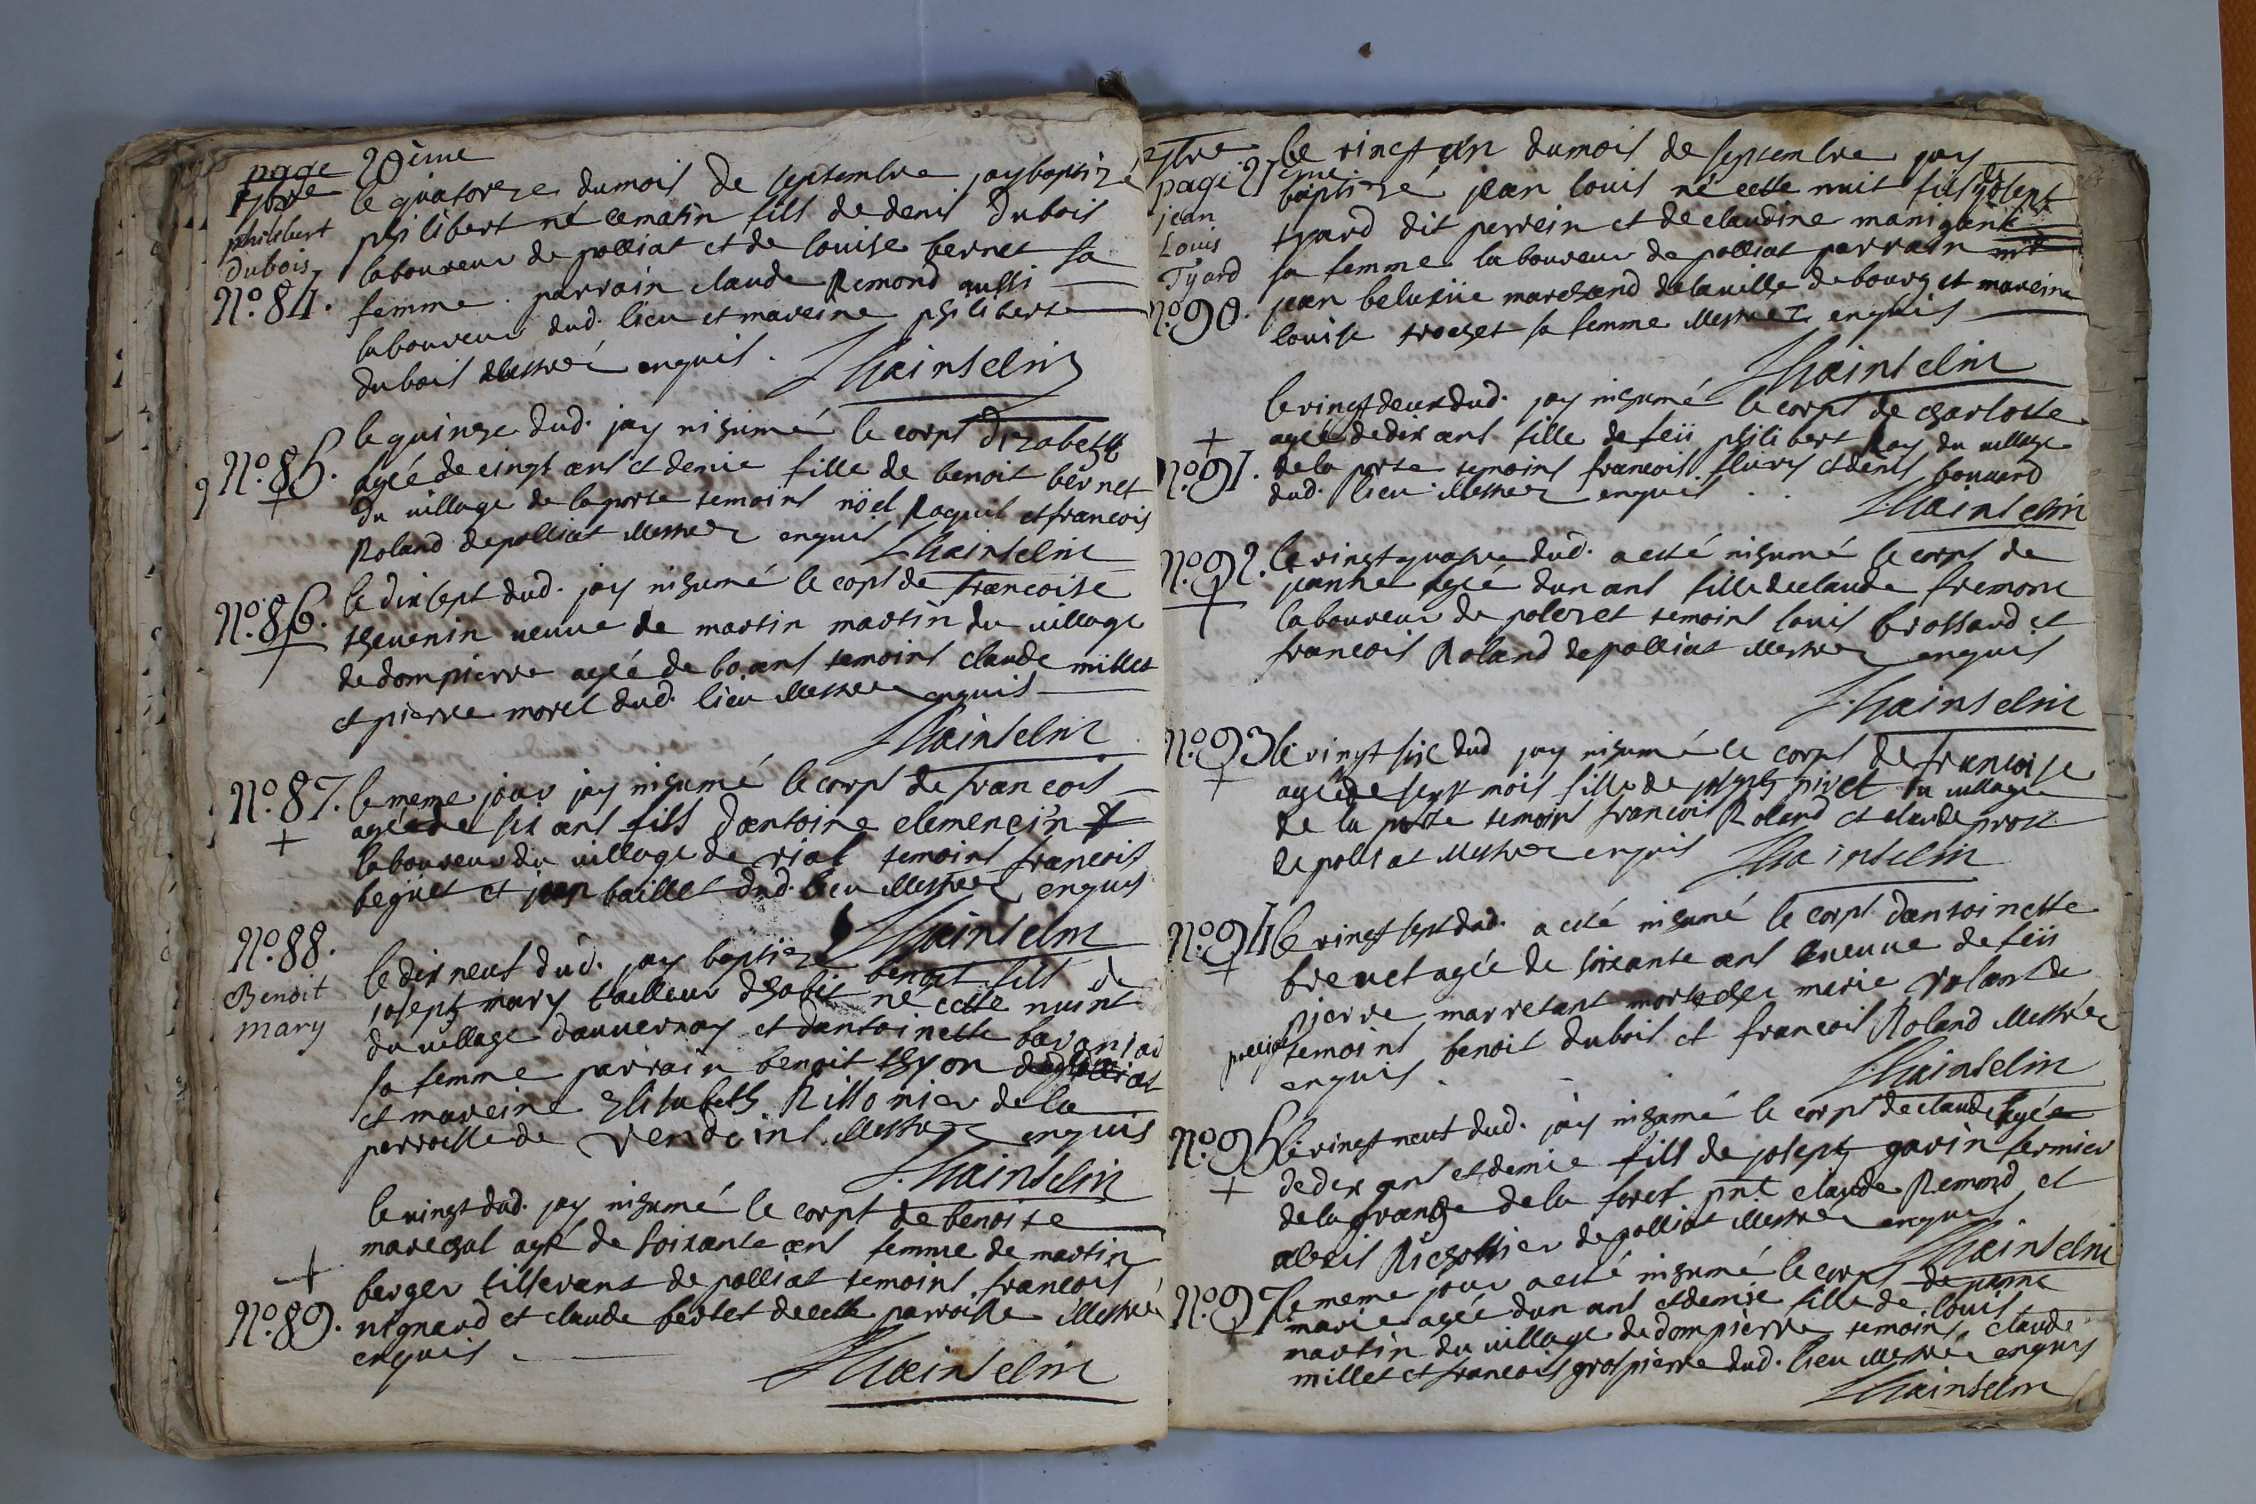 page 20ème
7bre
philibert
Dubois
N.º 84.
le quatorze du mois de septembre jay baptizé
philibert né ce matin fils de denis Dubois
laboureur de polliat et de louise bernet sa
femme. parrain claude Remond aussi
laboureur dud. lieu et mareine philiberte
Dubois illettréz enquis. J. hainselin
N.º 85.
le quinze dud. jay nihumé le corps dizabeth
agée de cingt ans et demie fille de benoit bernet
du village de la porte temoins nöel Raquil et francois
Roland de polliat illettréz enquis J. hainselin
N.º 86.
le dixsept dud. jay nihumé le cops de francoise
thevenin veuve de martin martin du village
de dompierre agée de 60 ans temoins claude millet
et pierre morel dud. lieu illettréz enquis
J. hainselin
N.º 87.
le meme jour jay nihumé le corps de francois
agée de six ans fils dantoine clemencin
laboureur du village de rial temoins francois
begüet et jean baillet dud. lieu illettréz enquis
J. hainselin
N.º 88.
Benoit
mary
le dix neuf dud. jay baptizé benoit fils de
joseph mary tailleur dhabit né cette nuint
du village dauvernay et dantoinette
sa femme parrain benoit thyon
et mareine Elisabeth Rissonier de la
parroisse de Vendeins illettréz enquis
J. hainselin
le vingt dud. jay nihumé le corps de benoite
marechal agée de soixante ans femme de martin
berger tisserant de polliat temoins francois
N.º 89.
nignard et claude bertet de cette parroisse illettré
enquis
J. hainselin
7bre
page 21eme
jean
Louis
Tyard
N.º 90.
le vingt un du mois de septembre jay
baptizé jean louis né cette nuit fils de joseph
tyard dit perrein et de claudine manigant
sa femme laboureur de polliat parrain
jean belusüe marchand de la ville de bourg et mareine
louise trochet sa femme illettréz enquis
J. hainselin
N.º 91.
le vingt deux dud. jay nihumé le corps de charlotte
agée de dix ans fille de feü philibert Ray du village
de la porte temoins francois fluvy et denis bouvard
dud. lieu illettréz enquis
J. hainselin
N.º 92.
le vingt quatre dud. a esté nihumé le corps de
jeanne agée dun ans fille de claude fremont
laboureur de polezet temoins louis brossard et
francois Roland de polliat illettréz enquis
J. hainselin
N.º 93
le vingt six dud jay nihumé le corps de francoise
agée de sept mois fille de joseph pivet du village
de la porte temoins francois Roland et claude prost
de polliat illettréz enquis J. hainselin
N.º 94
le vingt sept dud. a esté nihumé le corps dantoinette
brevet agée de soixante ans veuve de feü
pierre marretant morte chez merie rolant de
polliat temoins benoit dubois et francois Roland illettréz
enquis.
J. hainselin
N.º 96
le vingt neuf dud. jay nihumé le corps de claude agée
de dix ans et demie fils de joseph gavin fermier
de la grange de la foret pnt claude Remond et
alexis Richottier de polliat illettréz enquis
J. hainselin
N.º 97
le meme jour a esté nihumé le corps de jeanne
marie agée dun ans et demie fille de louis
martin du village de dompierre temoins claude
millet et francois grospierre dud. lieu illettréz enquis
J. hainselin